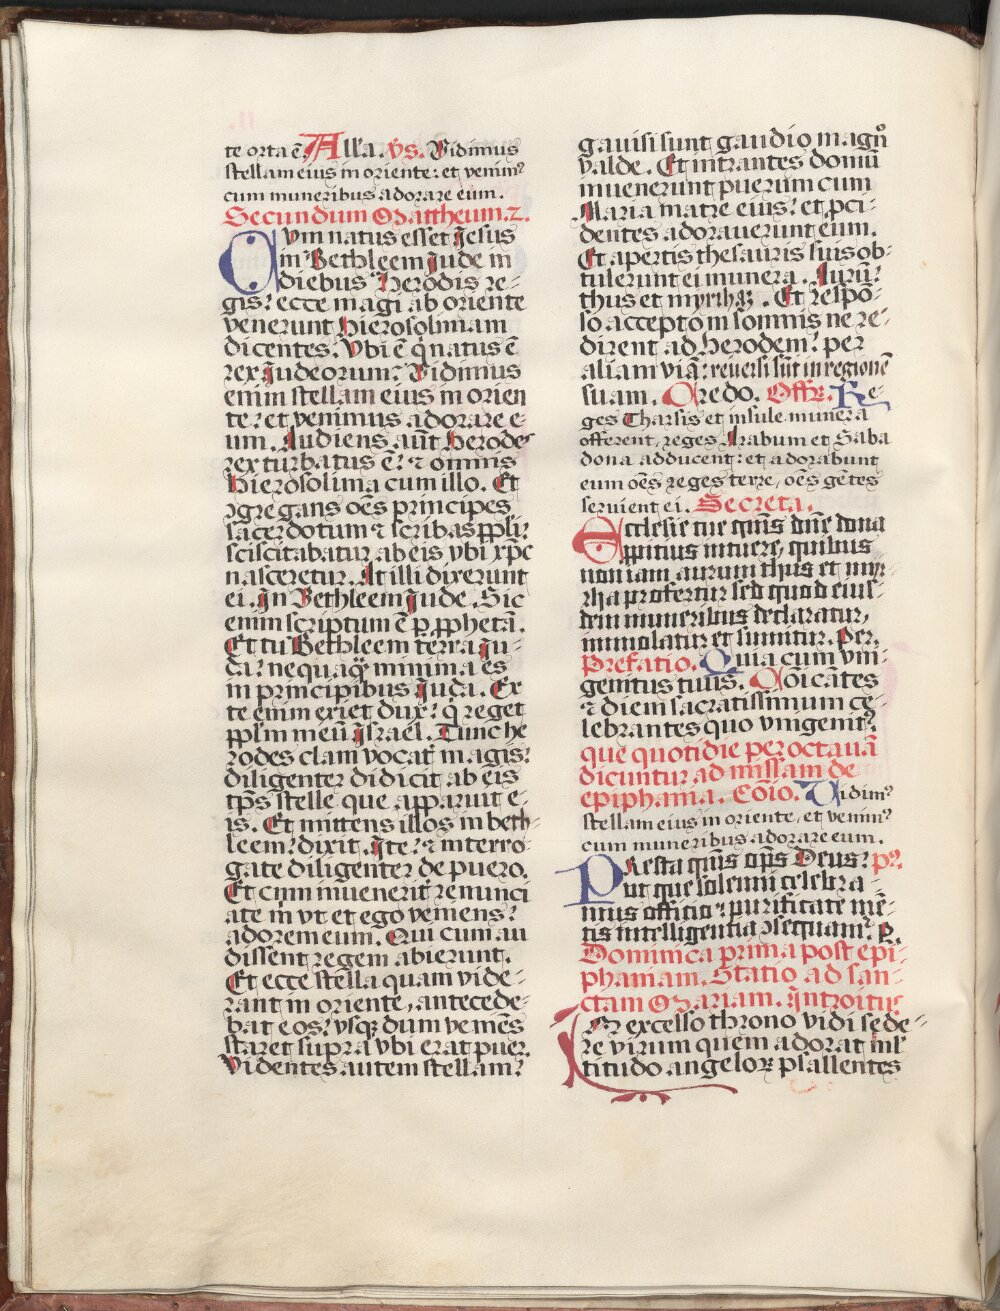 te orta ē. Alła. Vs. Vidimus
stellam eius in oriente: et venimꝰ
cum muneribus adorare eum.
Secundum Mattheum. 2.
Cvm natus esset Jesus
in Bethleem Jude in
diebus Herodis re-
gis: ecce magi ab oriente
venerunt hierosolimam
dicentes. Vbi ē q̇ natus ē
rex Judeorum: Vidimus
enim stellam eius in orien
te: et venimus adorare e-
um. Audiens aūt herodes
rex turbatus ē: ⁊ omnis
hierosolima cum illo. Et
ꝯgregans oēs principes
sacerdotum ⁊ scribas ppli:
sciscitabatur ab eis vbi xp̄c
nasceretur. At illi dixerunt
ei. Jn Bethleem Jude. Sic
enim scriptum ē ꝑ ꝓphetā.
Et tu Bethleem terra Ju-
da: nequaꝗ̃ minima es
in principibus Juda. Ex
te enim exiet dux: q̇ reget
pplm meū Jsrael. Tunc he
rodes clam vocat̉ magis:
diligenter didicit ab eis
tp̄s stelle que apparuit e-
is. Et mittens illos in beth-
leem: dixit. Jte: ⁊ interro-
gate diligenter de puero.
Et cum inuenerit̉ renunci
ate m̄ vt et ego veniens:
adorem eum. Qui cum au
dissent regem abierunt.
Et ecce stella quam vide-
rant in oriente, antecede-
bat eos: vsqꝫ dum veniēs
staret supra vbi erat puer.
Videntes autem stellam:
gauisi sunt gaudio magnͦ
valde. Et intrantes domū
inuenerunt puerum cum
Maria matre eius: et ꝓci-
dentes adorauerunt eum.
Et apertis thesauris suis ob-
tulerunt ei munera. Aurū:
thus et myrrhaꝫ. Et respō-
so accepto in somnis ne re-
dirent ad Herodem: per
aliam viā: reuersi sūt in regionē
suam. Credo. Offr. Re-
ges Tharsis et insule munera
offerent, reges Arabum et Saba
dona adducent: et adorabunt
eum oēs reges terre, oēs gētes
seruient ei. Secreta.
Ecclesie tue quis dn̄e dona
ꝓpitius intuere, quibus
non iam aurum thus et myr-
rha profertur sed quod eius-
dem muneribus declaratur,
immolatur et sumitur. Per.
Prefatio. Quia cum vni-
genitus tuus. Cōicātes
⁊ diem sacratissimum ce-
lebrantes quo vnigenitꝰ.
que quotidie per octauā
dicuntur ad missam de
epiphania. Cōio. Vidimꝰ
stellam eius in oriente, et venimꝰ
cum muneribus adorare eum.
Presta quis ops̄ Deus: pꝰ.
ut que solenni celebra-
mus officio: purificate mē-
tis intelligentia ꝯsequamr̉. P.
Dominica prima post epi-
phaniam. Statio ad san-
ctam Mariam. Jntroitus
In excelso throno vidi sede-
re virum quem adorat ml̄
titudo angeloꝝ psallentes